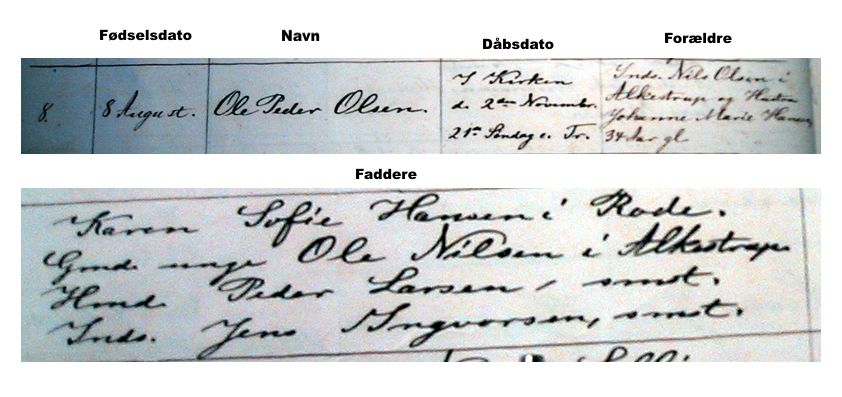 Fødselsdato Navn Dåbsdato Forældre
8. 8 August. Ole Peder Olsen.
I Kirken
d. 2den Novembr.
21de Søndag e. Tr.
Inds. Nils Olsen i
Alkestrup og Hustru
Johanne Marie Hansen
34 Aar gl
Faddere
Karen Sofie Hansen i Rode.
Gmd. unge Ole Nilsen i Alkestrup
Hmd Peder Larsen, smst.
Inds. Jens Ingvorsen, smst.